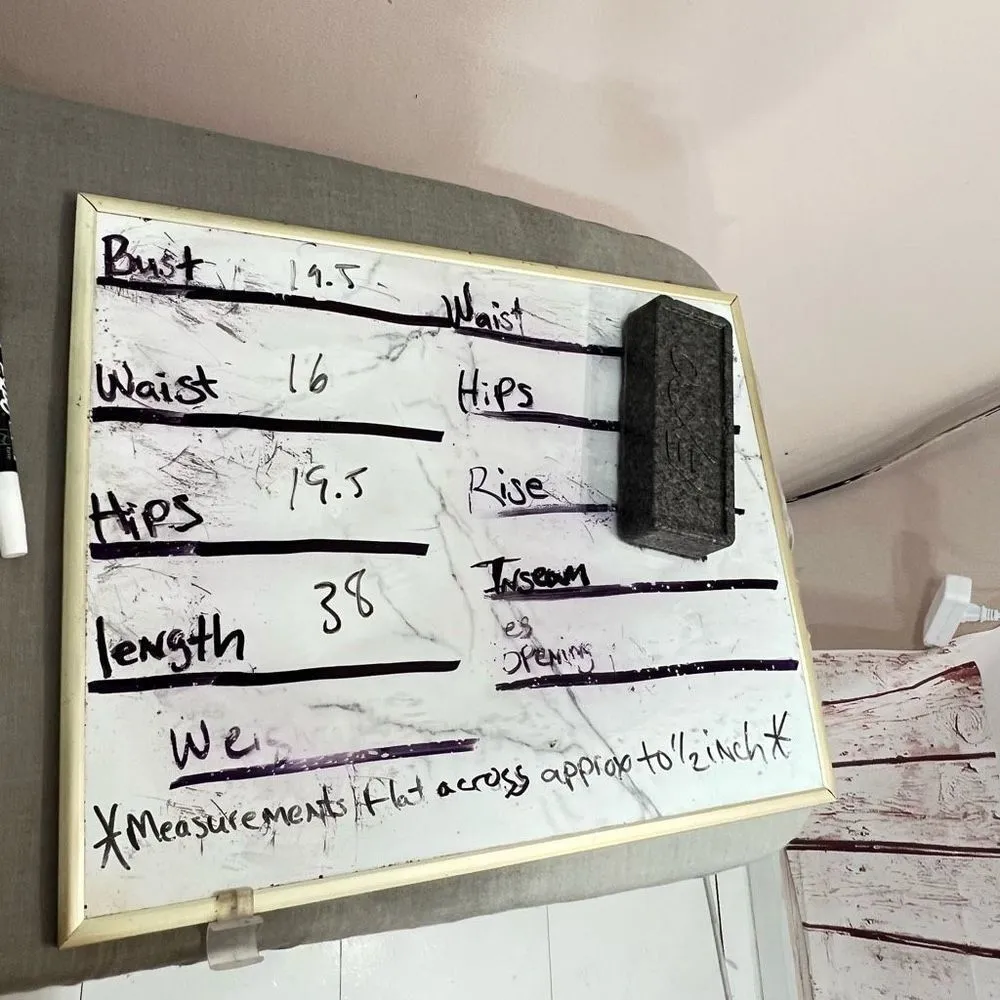 Bust 19.5
Waist 16
Hips 19.5
length 38
Wei
Waist
Hips
Rise
Inseam
es
opening
*Measurements flat across approx to 1/2 inch*